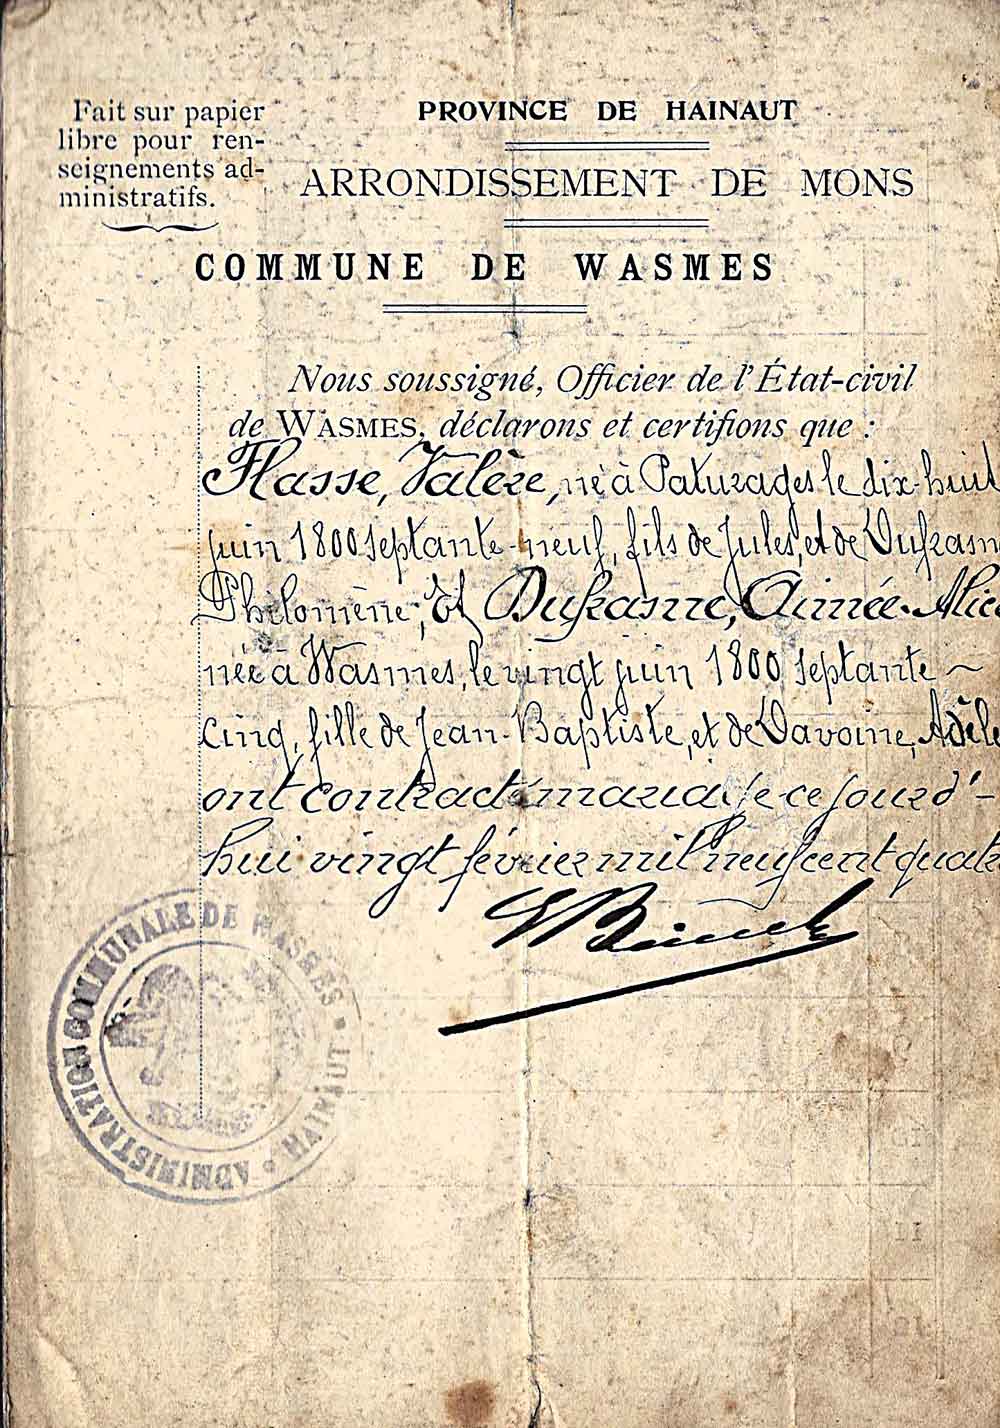 Fait sur papier
libre pour ren-
seignements ad-
ministratifs.
PROVINCE DE HAINAUT
ARRONDISSEMENT DE MONS
COMMUNE DE WASMES
Nous soussigné, Officier de l'État-civil
de WASMES, déclarons et certifions que :
Flasse, Valère, né à Paturages le dix-huit
juin 1800 septante-neuf, fils de Jules, et de Dufrasn
Philomène; Et Dufrasne, Aimée-Alice
née à Wasmes, le vingt juin 1800 septante ~
cinq, fille de Jean-Baptiste, et de Davoine, Adèle
ont contracté mariage ce jourd'-
hui vingt février mil neuf cent quatr
ADMINISTRATION COMMUNALE DE WASMES
HAINAUT